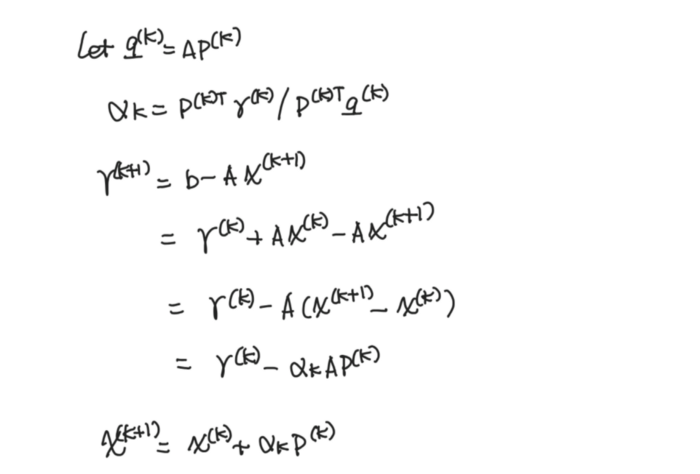 Let q^(k) = AP^(k)
αk = P^(k)T r^(k) / P^(k)T q^(k)
r^(k+1) = b - A x^(k+1)
= r^(k) + A x^(k) - A x^(k+1)
= r^(k) - A (x^(k+1) - x^(k))
= r^(k) - αk A P^(k)
x^(k+1) = x^(k) + αk P^(k)